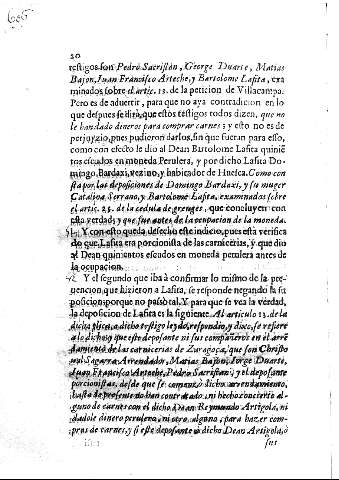 606
20
testigos son Pedro Sacristan, George Duarte, Matias
Bajon, Iuan Francisco Arteche, y Bartolome Lafita, exa
minados sobre el artic. 13. de la peticion de Villacampa.
Pero es de aduertir, para que no aya contradicion en lo
que despues se dirà, que estos testigos todos dizen, que no
le han dado dineros para comprar carnes; y esto no es de
perjuyzio, pues pudieron darlos, sin que fueran para esso,
como con efecto le dio al Dean Bartolome Lafita quinié
tos escudos en moneda Perulera, y por dicho Lafita Do-
mingo Bardaxi, vezino, y habitador de Huesca. Como con
sta por las deposiciones de Domingo Bardaxi, y su muger
Catalina Serrano, y Bartolome Lafita, examinados sobre
el artic. 25. de la cedula de greuges, que concluyen con
esta verdad; y que fue antes de la ocupacion de la moneda.
Y con esto queda desecho este indicio, pues està verifica
do que Lafita era porcionista de las carnicerias, y que dio
al Dean quinientos escudos en moneda perulera antes de
la ocupacion.
Y el segundo que iba à confirmar lo mismo de la pre-
uencion, que hizieron a Lafita, se responde negando la su
posicion; porque no passò tal. Y para que se vea la verdad,
la deposicion de Lafita es la siguiente. Al articulo 13. de la
dicha plica, a dicho testigo leydo, respondio, y dixo, se refiere
a lo dicho; y que este deposante ni sus compañeros en el arre
damiento de las carnicerias de Zaragoça, que son Christo
ual Segarra Arrendador, Matias Bajon, Iorge Duarte,
Iuan Francisco Arteche, Pedro Sacristan; y el deposante
porcionistas, desde que se començò dicho arrendamiento,
hasta de presente no han contratado, ni hecho concierto al-
guno de carnes con el dicho Dean Reymundo Artigola, ni
dadole dinero perulero, ni otro alguno, para hazer com-
pras de carnes, y si este deposante à dicho Dean Artigola, ò
sus